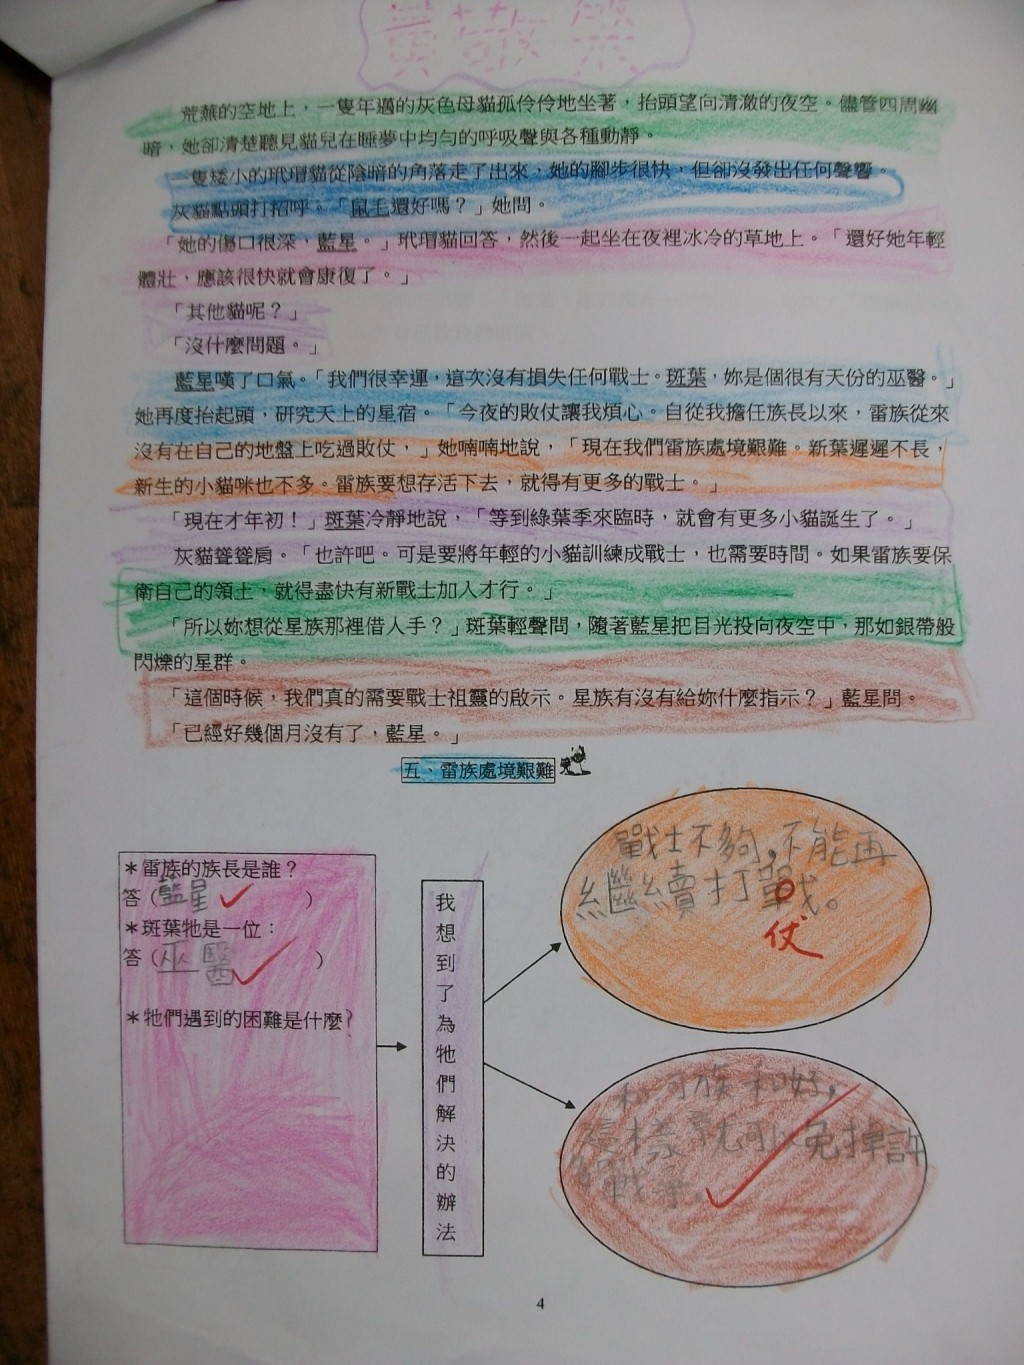 荒蕪的空地上，一隻年邁的灰色母貓孤伶伶地坐著，抬頭望向清澈的夜空。儘管四周幽
暗，她卻清楚聽見貓兒在睡夢中均勻的呼吸聲與各種動靜。
一隻矮小的玳瑁貓從陰暗的角落走了出來，她的腳步很快，但卻沒發出任何聲響。
灰貓點頭打招呼。「鼠毛還好嗎？」她問。
「她的傷口很深，藍星。」玳瑁貓回答，然後一起坐在夜裡冰冷的草地上。「還好她年輕
體壯，應該很快就會康復了。」
「其他貓呢？」
「沒什麼問題。」
藍星嘆了口氣。「我們很幸運，這次沒有損失任何戰士。斑葉，妳是個很有天份的巫醫。」
她再度抬起頭，研究天上的星宿。「今夜的敗仗讓我煩心。自從我擔任族長以來，雷族從來
沒有在自己的地盤上吃過敗仗，」她喃喃地說，「現在我們雷族處境艱難。新葉遲遲不長，
新生的小貓咪也不多。雷族要想存活下去，就得有更多的戰士。」
「現在才年初！」斑葉冷靜地說，「等到綠葉季來臨時，就會有更多小貓誕生了。」
灰貓聳聳肩。「也許吧。可是要將年輕的小貓訓練成戰士，也需要時間。如果雷族要保
衛自己的領土，就得盡快有新戰士加入才行。」
「所以妳想從星族那裡借人手？」斑葉輕聲問，隨著藍星把目光投向夜空中，那如銀帶般
閃爍的星群。
「這個時候，我們真的需要戰士祖靈的啟示。星族有沒有給妳什麼指示？」藍星問。
「已經好幾個月沒有了，藍星。」
五、雷族處境艱難
＊雷族的族長是誰？
答（藍星）
＊斑葉牠是一位：
答（巫醫）
＊牠們遇到的困難是什麼？
我想到了為牠們解決的辦法
戰士不夠，不能再
繼續打戰。
仗
和河族和好，
這樣就可以免掉許
多戰爭。
4